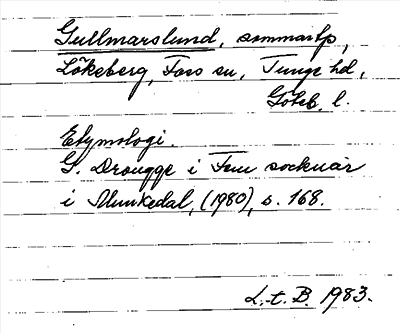 Gullmarslund, sommarhp,
Lökeberg, Foss sn, Tunge hd,
Göteb. l.
Etymologi.
G. Drougge i Fem socknar
i Munkedal, (1980), s. 168.
L. t. B. 1983.